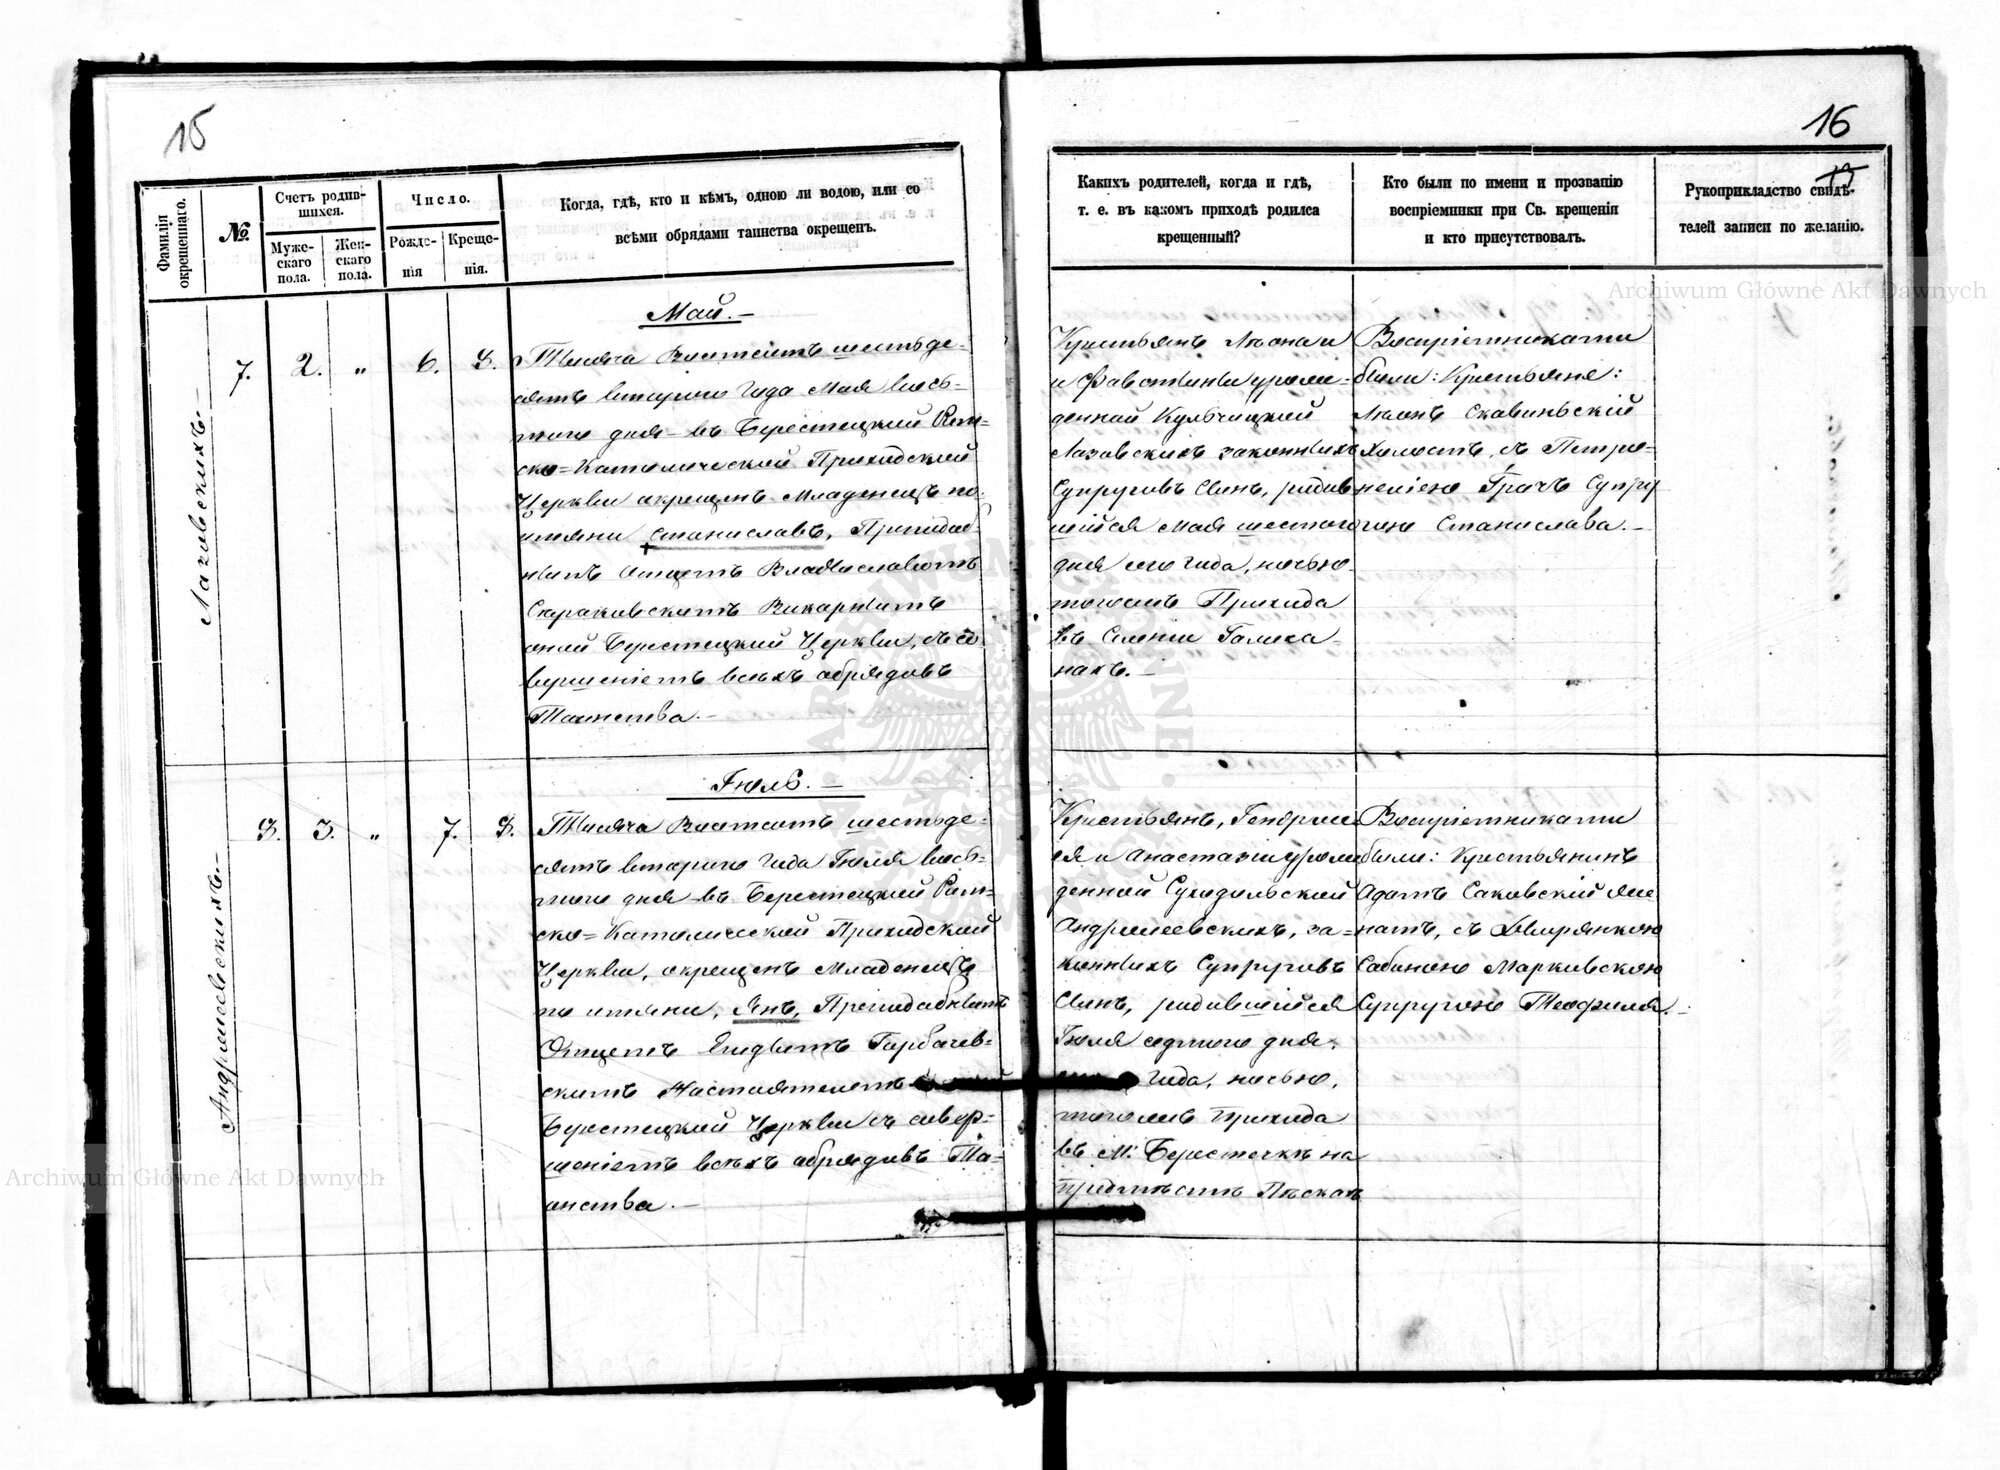 15
16
17
Фамилія окрещеннаго.
№.
Счетъ родив-
шихся.
Муже-
скаго
пола.
Жен-
скаго
пола.
Число.
Рожде-
нія
Креще-
нія.
Когда, гдѣ, кто и кѣмъ, одною ли водою, или со
всѣми обрядами таинства окрещенъ.
Какихъ родителей, когда и гдѣ,
т. е. въ какомъ приходѣ родился
крещенный?
Кто были по имени и прозванію
воспріемники при Св. крещеніи
и кто присутствовалъ.
Рукоприкладство свидѣ-
телей записи по желанію.
Лазовскихъ.-
7.
2.
"
6.
8.
Май.-
Тысяча Восемсотъ шестьде-
сятъ втораго года Мая вось-
маго дня - въ Берестецкой Рим-
ско=Католической Приходской
Церкви окрещенъ Младенецъ по
имяни Станиславъ, Преподоб-
нымъ Отцемъ Владиславомъ
Викарнымъ
оной Берестецкой Церкви, съ со
вершеніемъ всѣхъ обрядовъ
Таинства.-
Крестьянъ Леона и
и Фавстины урож-
денной Кульчицкой
Лазовскихъ законныхъ
Супруговъ Сынъ, родив
шійся Мая шестого
дня сего года, ночью
тогожъ Прихода
въ Селеніи Галича-
нахъ.-
Воспріемниками
были: Крестьяне:
Леонъ Скавиньскій
холостъ, съ Петро-
нелею Грачъ Супру
гою Станислава.-
Андржеевскихъ.-
8.
3.
"
7.
8.
Іюль.-
Тысяча Восемсотъ шестьде-
сятъ втораго года Іюля вось-
маго дня - въ Берестецкой Рим-
ско=Католической Приходской
Церкви, окрещенъ Младенецъ
по имяни, Янъ, Преподобнымъ
Отцемъ Гарбачев-
скимъ Настоятелемъ
Берестецкой Церкви съ совер-
шеніемъ всѣхъ обрядовъ Та-
инства.-
Крестьянъ, Гендрие
ея и Анастазіи урож
денной Суходольской
Андржеевскихъ, за-
конныхъ Супруговъ
Сынъ, родившійся
Іюля седьмого дня
года, ночью,
тогожъ Прихода
въ М. Берестечкѣ на
предмѣстѣ Пѣскахъ
Воспріемниками
были: Крестьянинъ
Адамъ Саковскій же
натъ, съ Дворянкою
Сабиною Марковскою
Супругою Теофиля.-
Archiwum Główne Akt Dawnych
Archiwum Główne Akt Dawnych